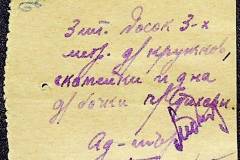 3 шт. досок 3-х
метр. д/ кружков,
скамейки и дна
д/ бочки
Ад-